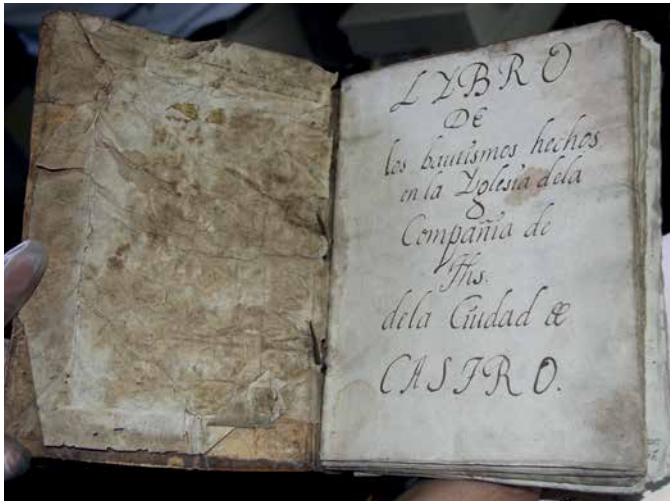 LYBRO
DE
los bautismos hechos
en la Yglesia dela
Compañia de
Jhs.
dela Ciudad de
CASTRO.